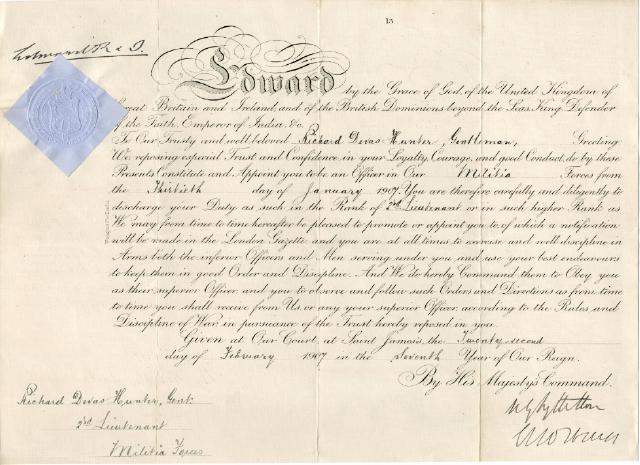 15
Edward R & I.
Edward by the Grace of God, of the United Kingdom of
Great Britain and Ireland, and of the British Dominions beyond the Seas, King, Defender
of the Faith, Emperor of India, &c.
To Our Trusty and well beloved Richard Devas Hunter, Gentleman, Greeting
We reposing especial Trust and Confidence in your Loyalty, Courage, and good Conduct, do by these
Presents Constitute and Appoint you to be an Officer in Our Militia Forces from
the Thirtieth day of January 1907. You are therefore carefully and diligently to
discharge your Duty as such in the Rank of 2nd Lieutenant or in such higher Rank as
We may from time to time hereafter be pleased to promote or appoint you to, of which a notification
will be made in the London Gazette and you are at all times to exercise and well discipline in
Arms both the inferior Officers and Men serving under you and use your best endeavours
to keep them in good Order and Discipline. And We do hereby Command them to Obey you
as their superior Officer, and you to observe and follow such Orders and Directions as from time
to time you shall receive from Us or any your superior Officer, according to the Rules and
Discipline of War, in pursuance of the Trust hereby reposed in you.
Given at Our Court, at Saint James's, the Twenty second
day of February 1907 in the Seventh Year of Our Reign.
By His Majesty's Command.
Richard Devas Hunter, Gent.
2nd Lieutenant
Militia Forces